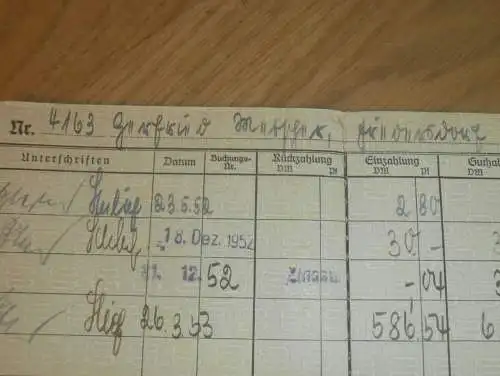 Nr. 4163 Gerfried Metscher,
Unterschriften Datum Buchungs-Nr. Rückzahlung DM Pf Einzahlung DM Pf Guthab
23.5.52 2 80
18. Dez. 1952 30 -
31. 12. 52 Zinsen -,04
26.3.53 586,54 6